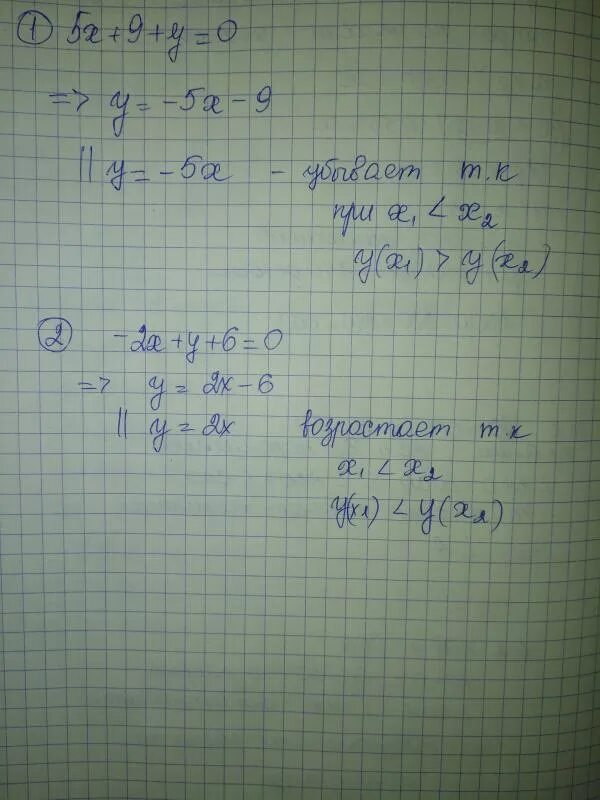 ① 5x+9+y=0
=> y = -5x-9
|| y = -5x - убывает т.к
при x₁ < x₂
y(x₁) > y(x₂)
② -2x+y+6=0
=> y = 2x-6
|| y = 2x возрастает т.к
x₁ < x₂
y(x₁) < y(x₂)